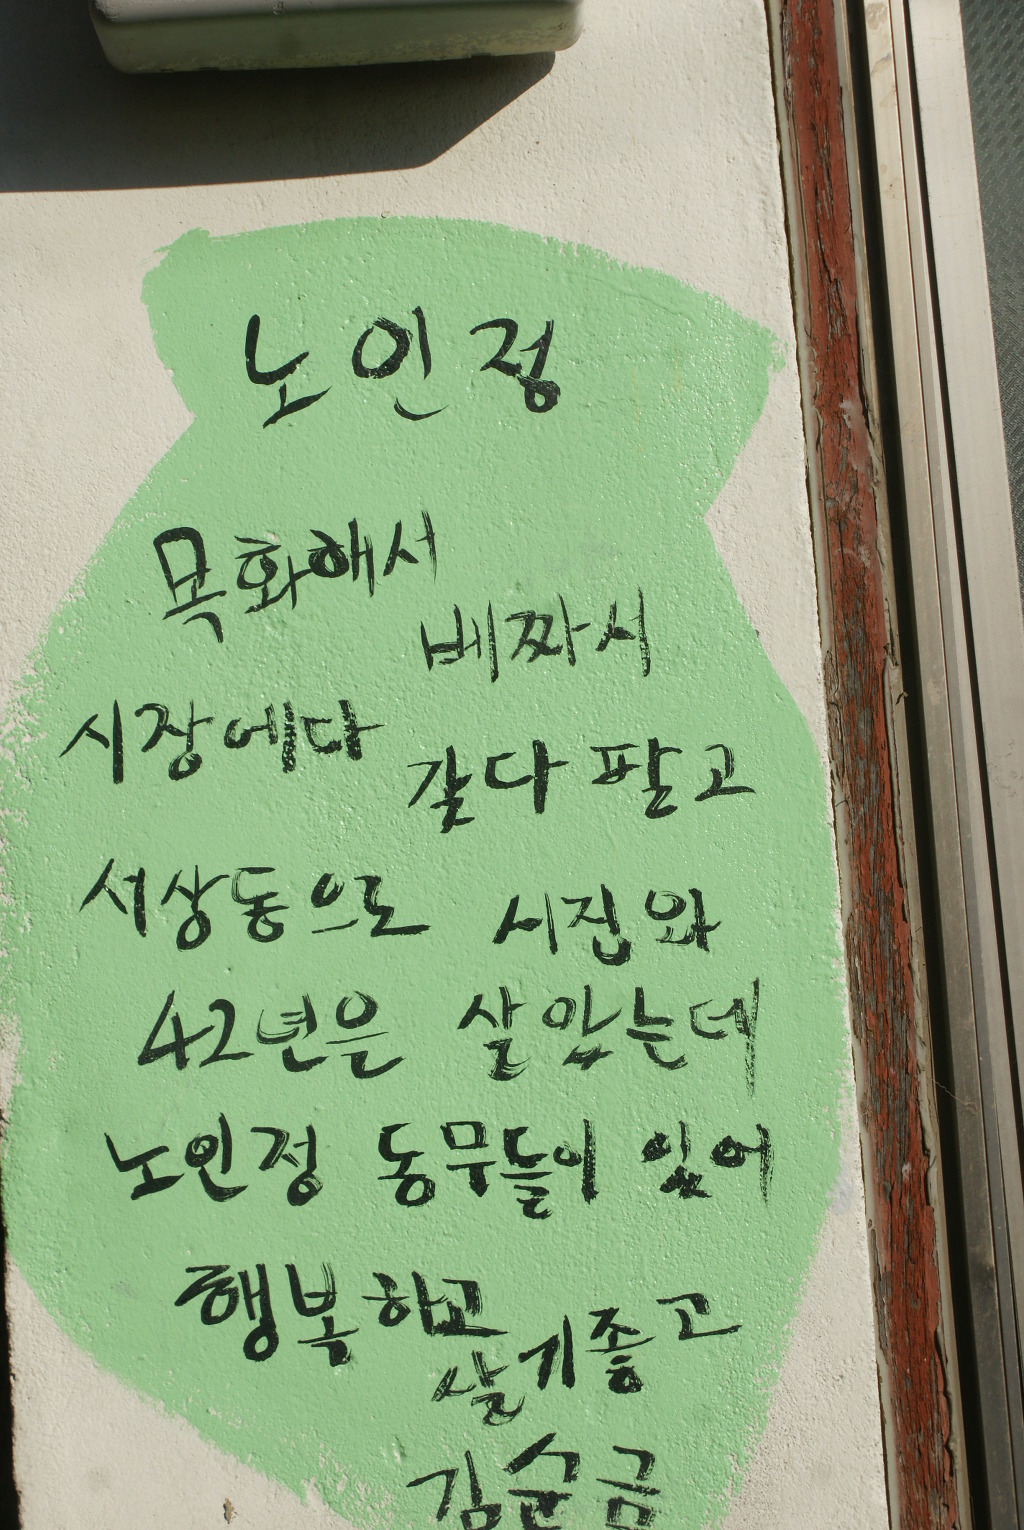 노인정
목화해서
베짜서
시장에다
갖다 팔고
서상동으로 시집와
42년은 살았는데
노인정 동무들이 있어
행복하고
살기좋고
김순금